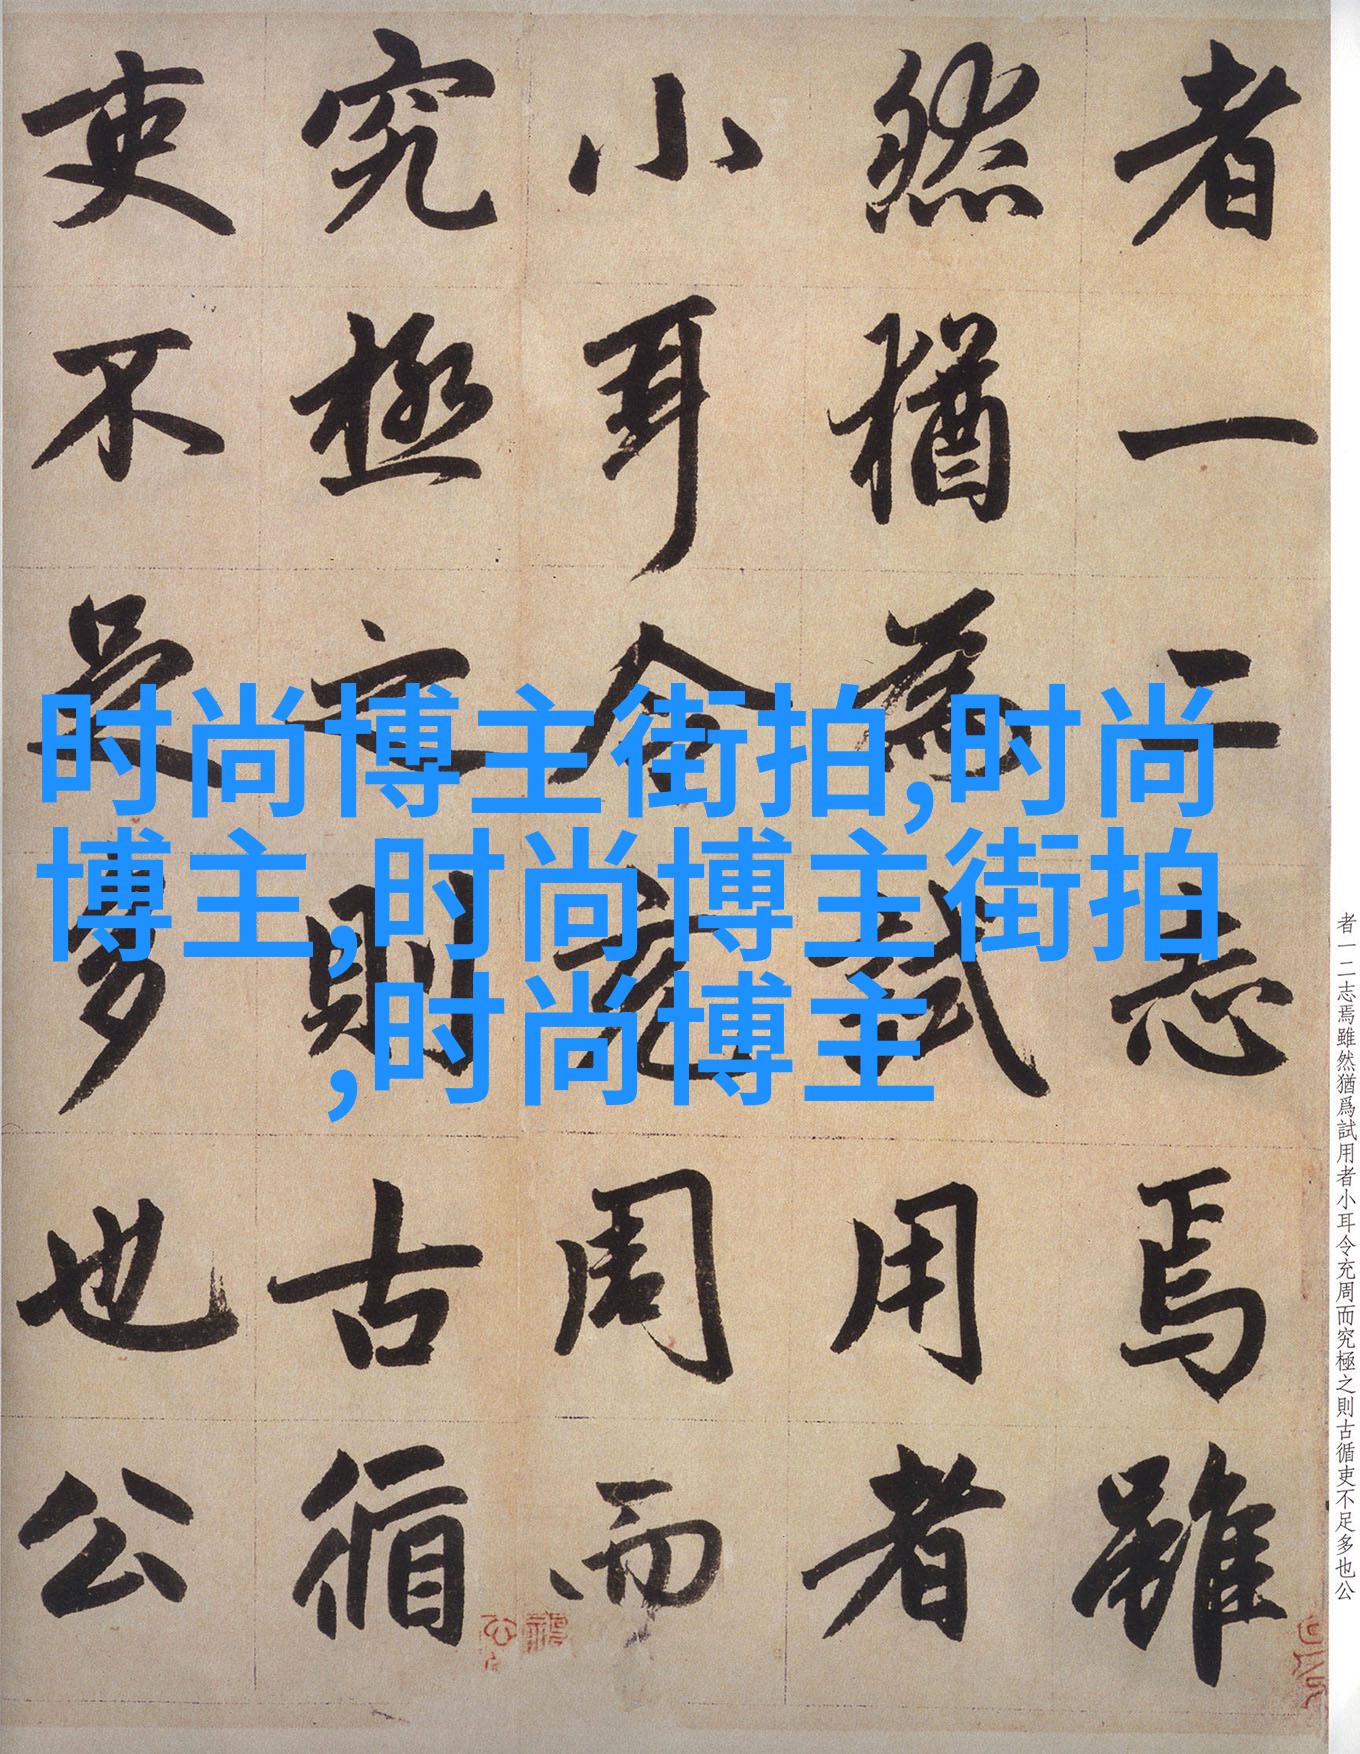 者一二志焉雖
然猶為試用者
小耳令充周而
究極之則古循
吏不足多也公
时尚博主街拍,时尚
博主,时尚博主街拍
,时尚博主
者一二志焉雖然猶爲試用者小耳令充周而究極之則古循吏不足多也公